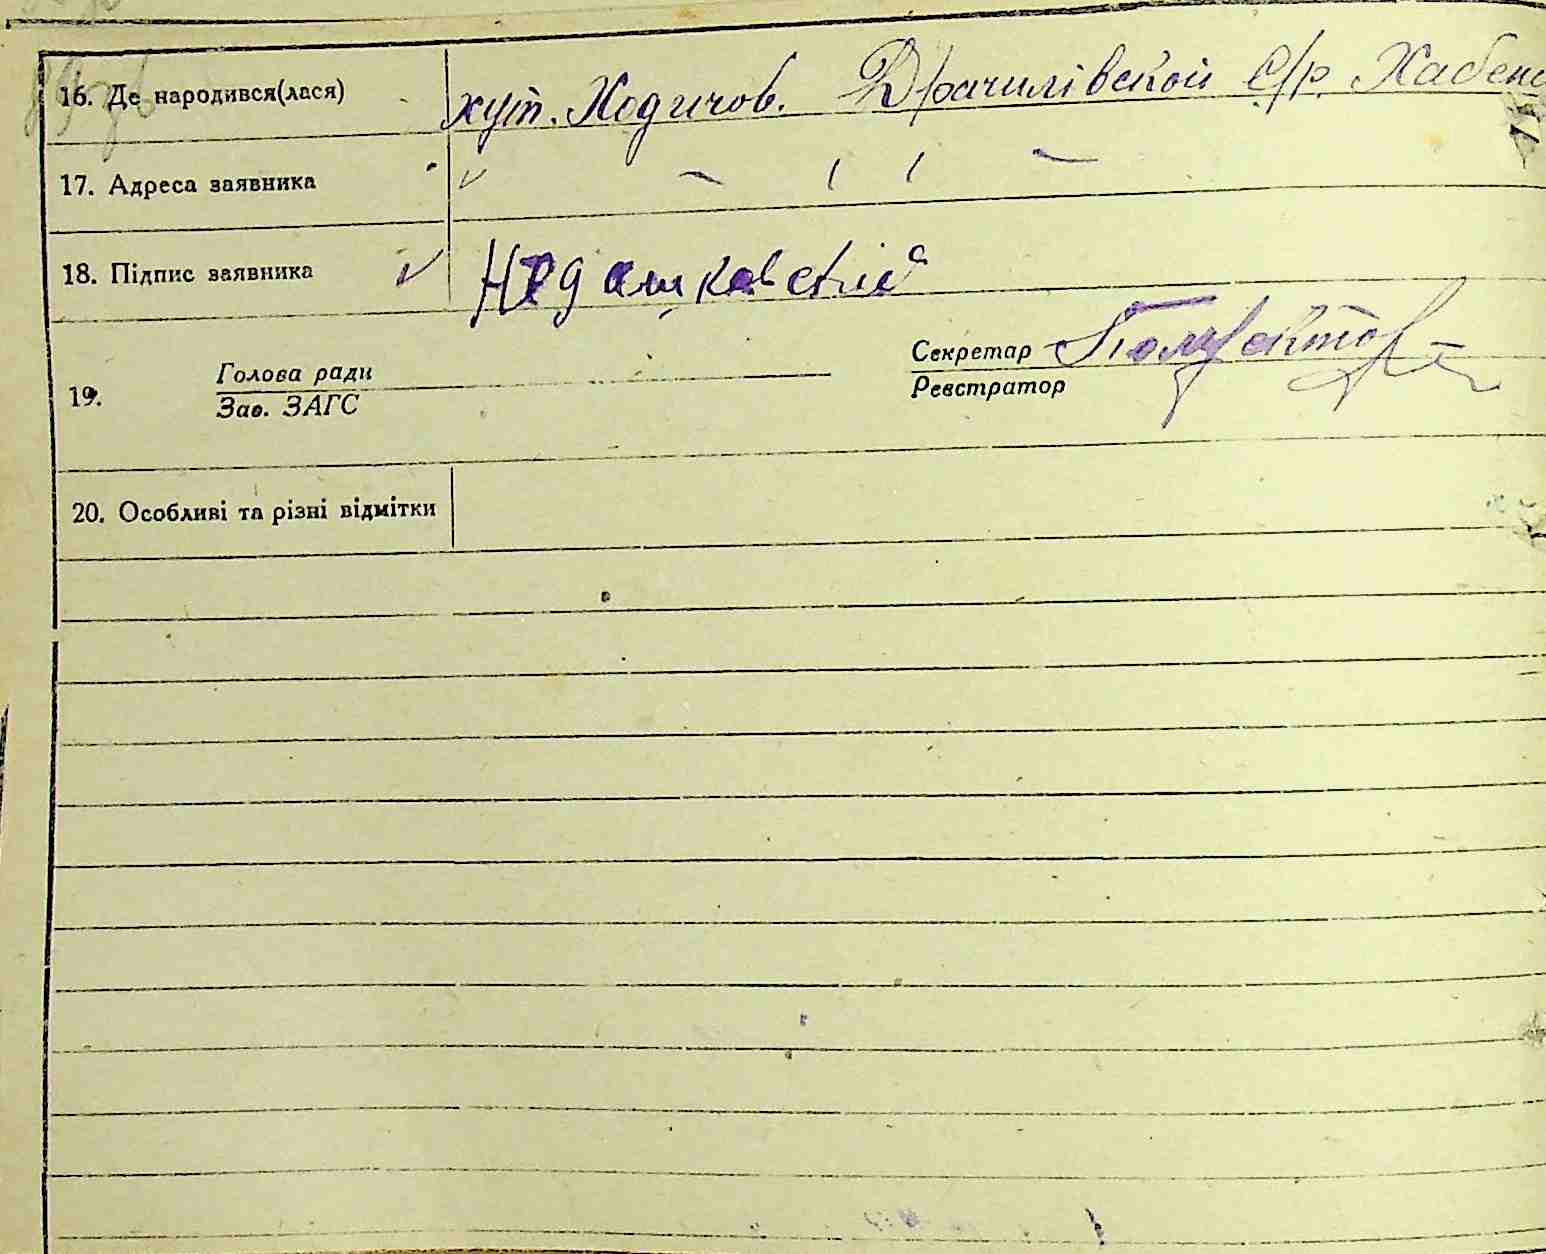 16. Де народився(лася) хут. Ходичов. Драчилівской С/р. Хабенс
17. Адреса заявника
18. Підпис заявника Недашковский
19. Голова ради Секретар
Зав. ЗАГС Реєстратор
20. Особливі та різні відмітки